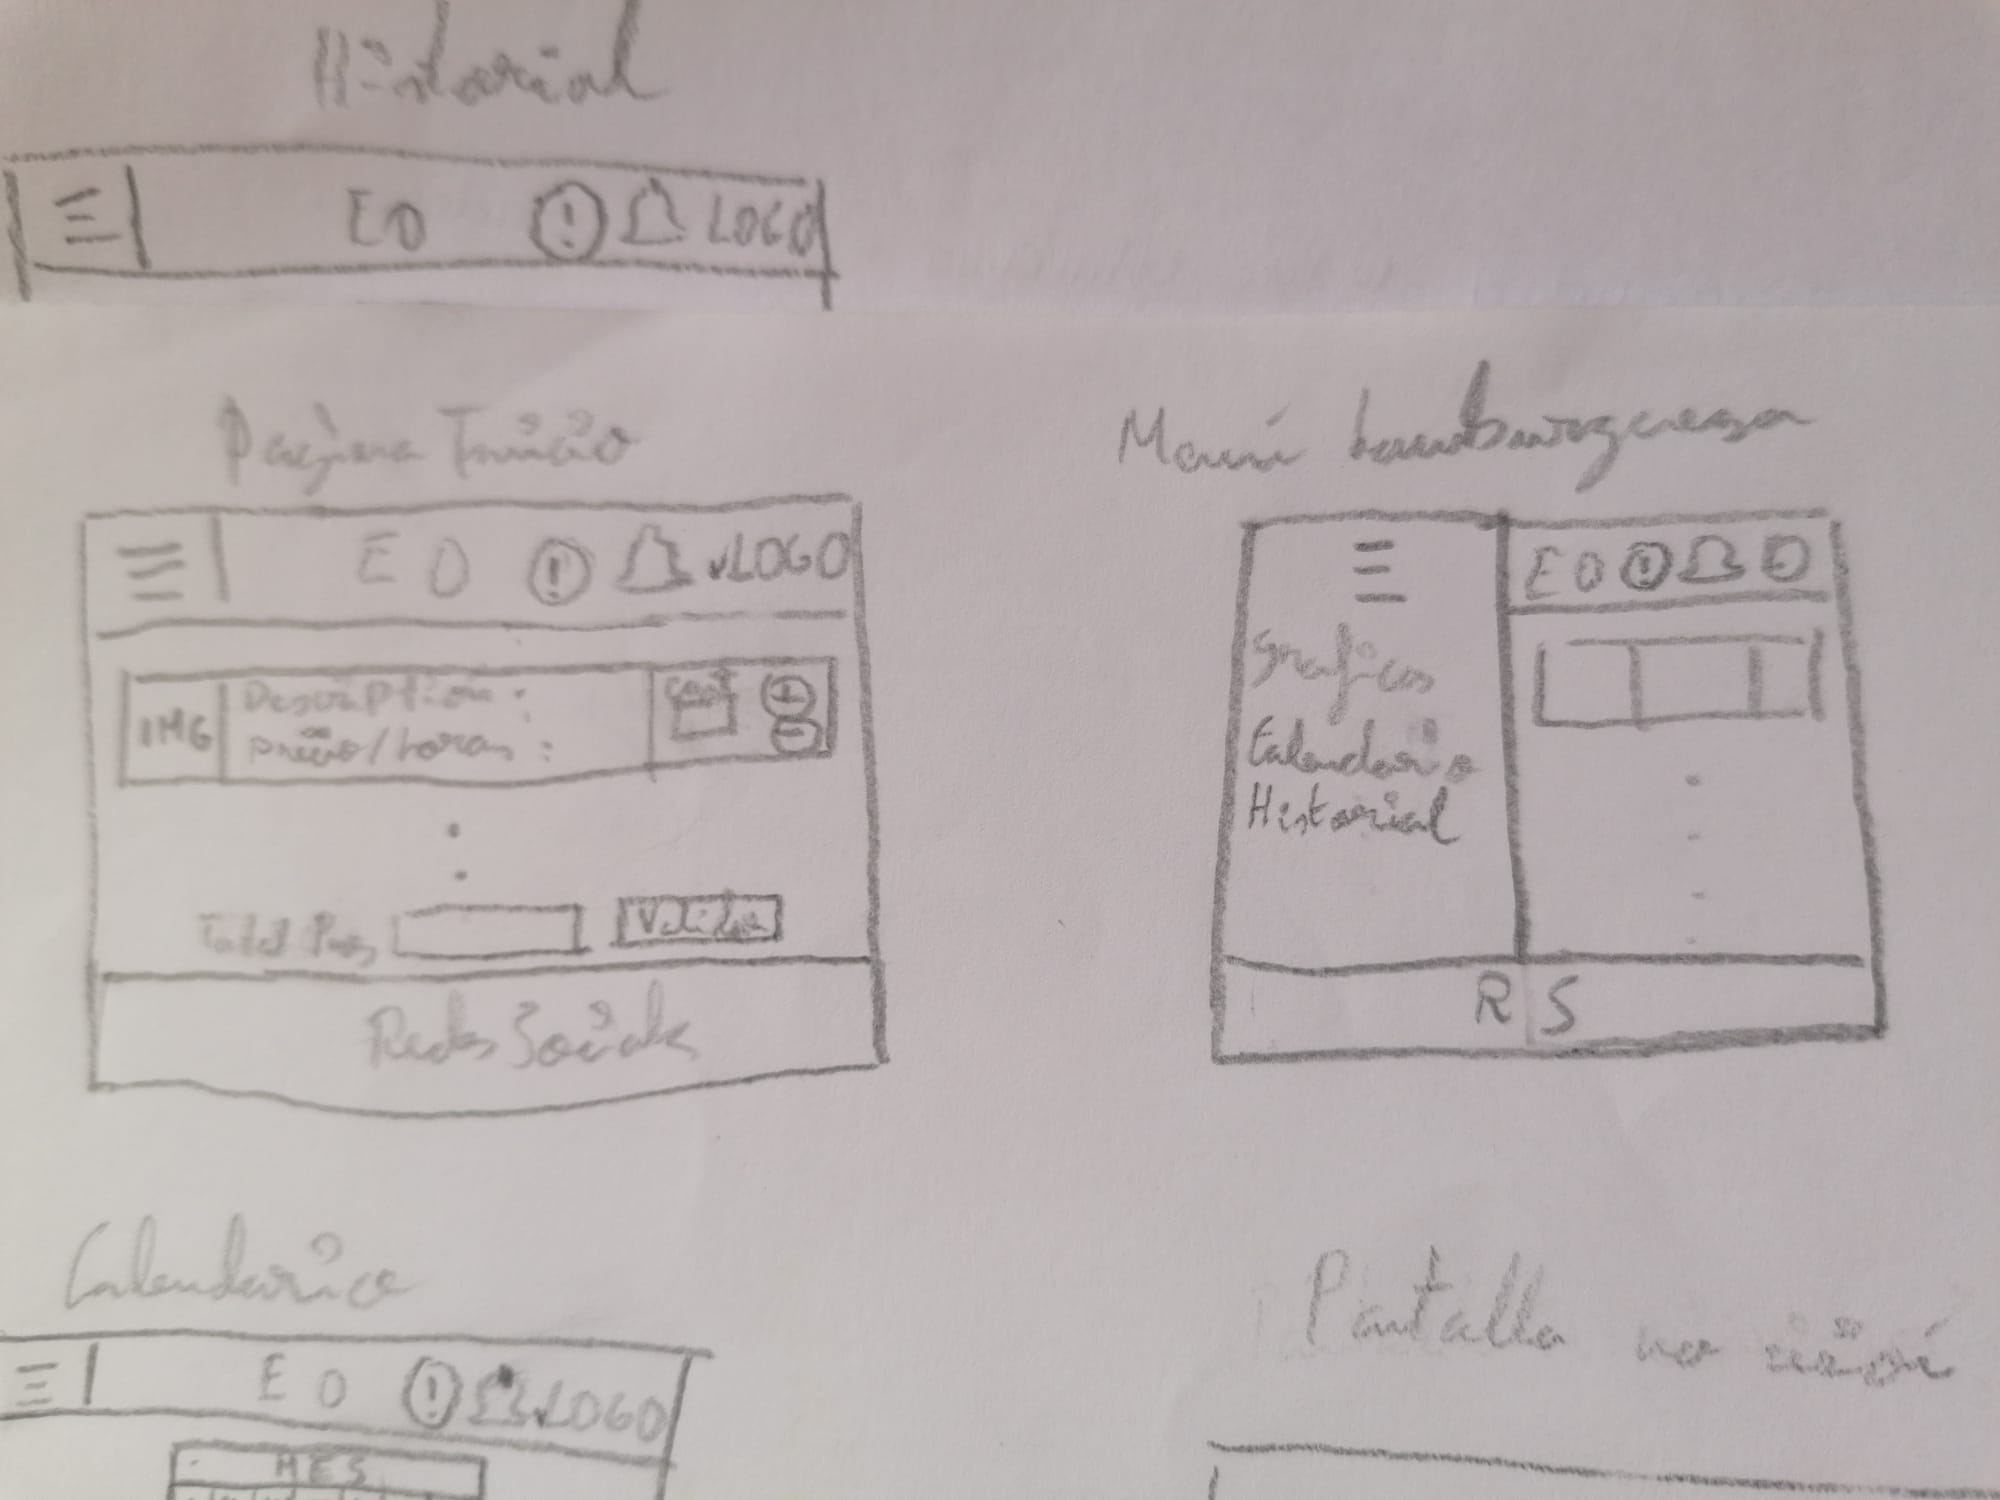 Historial
E O ! LOGO
Página Inicio
E O ! LOGO
IMG
Description :
precio/horas :
cant
+
-
Total Pag
Validar
Redes Sociales
Menú hamburguesa
E O !
Graficos
Calendario
Historial
R S
Calendario
E O ! LOGO
MES
Pantalla no